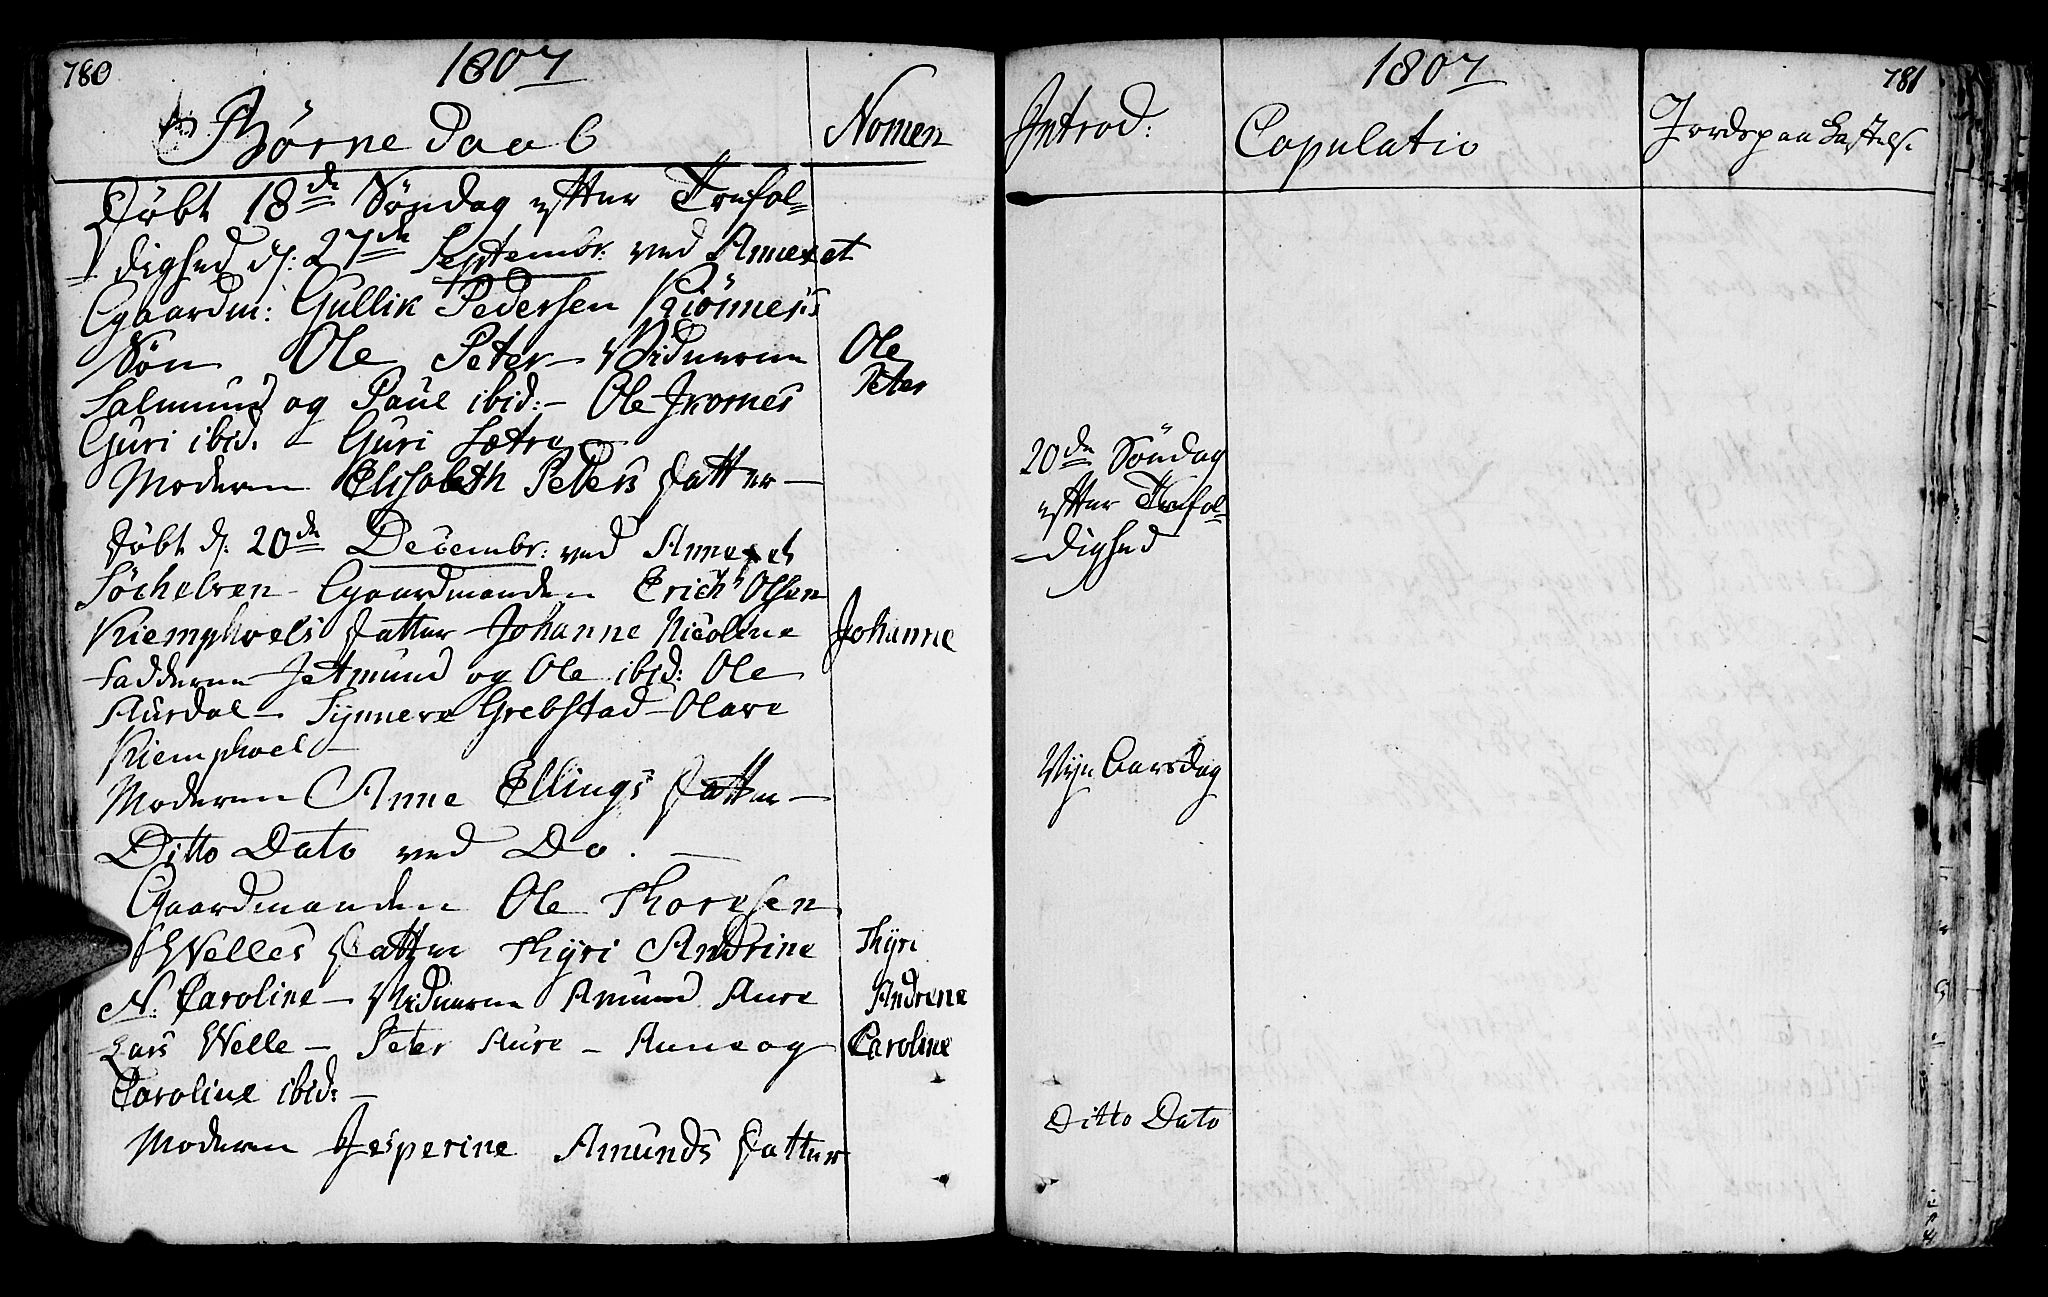 780
1807
Børne Daab
Nomen
Døbt 18de Søndag efter Trefol-
dighed d: 27de Septembr: ved Annexet
Gaardm: Gullik Pedersen Kiørmes's
Søn Ole Peter - Vidnerne
Ole
Peter
Salmund og Paul ibid: - Ole Jkornes
Guri ibid: - Guri Sætre
Moderen Elisabeth Peters Datter -
Døbt d: 20de Decembr: ved Annexet
Söchelven - Gaardmanden Erich Olsen
Kiemphoels Datter Johanne Nicoline
Johanne
Fadderne Jetmund og Ole ibid: Ole
Aurdal - Synneve Grebstad - Olave
Kiemphoel -
Moderen Anne Ellings Datter -
Ditto Dato ved Do. -
Gaardmanden Ole Thoresen
Welles Datter Thyri Andrine
Thyri
N. Caroline - Vidnerne Amund Aure
Andrene
Lars Welle - Peter Aure - Anne og
Caroline
Caroline ibid: -
Moderen Jesperine Amunds Datter
1807
781
Introd:
Copulatio
Jordspaakastels.
20de Søndag
efter Trefol-
dighed
Nyt Aarsdag
Ditto Dato